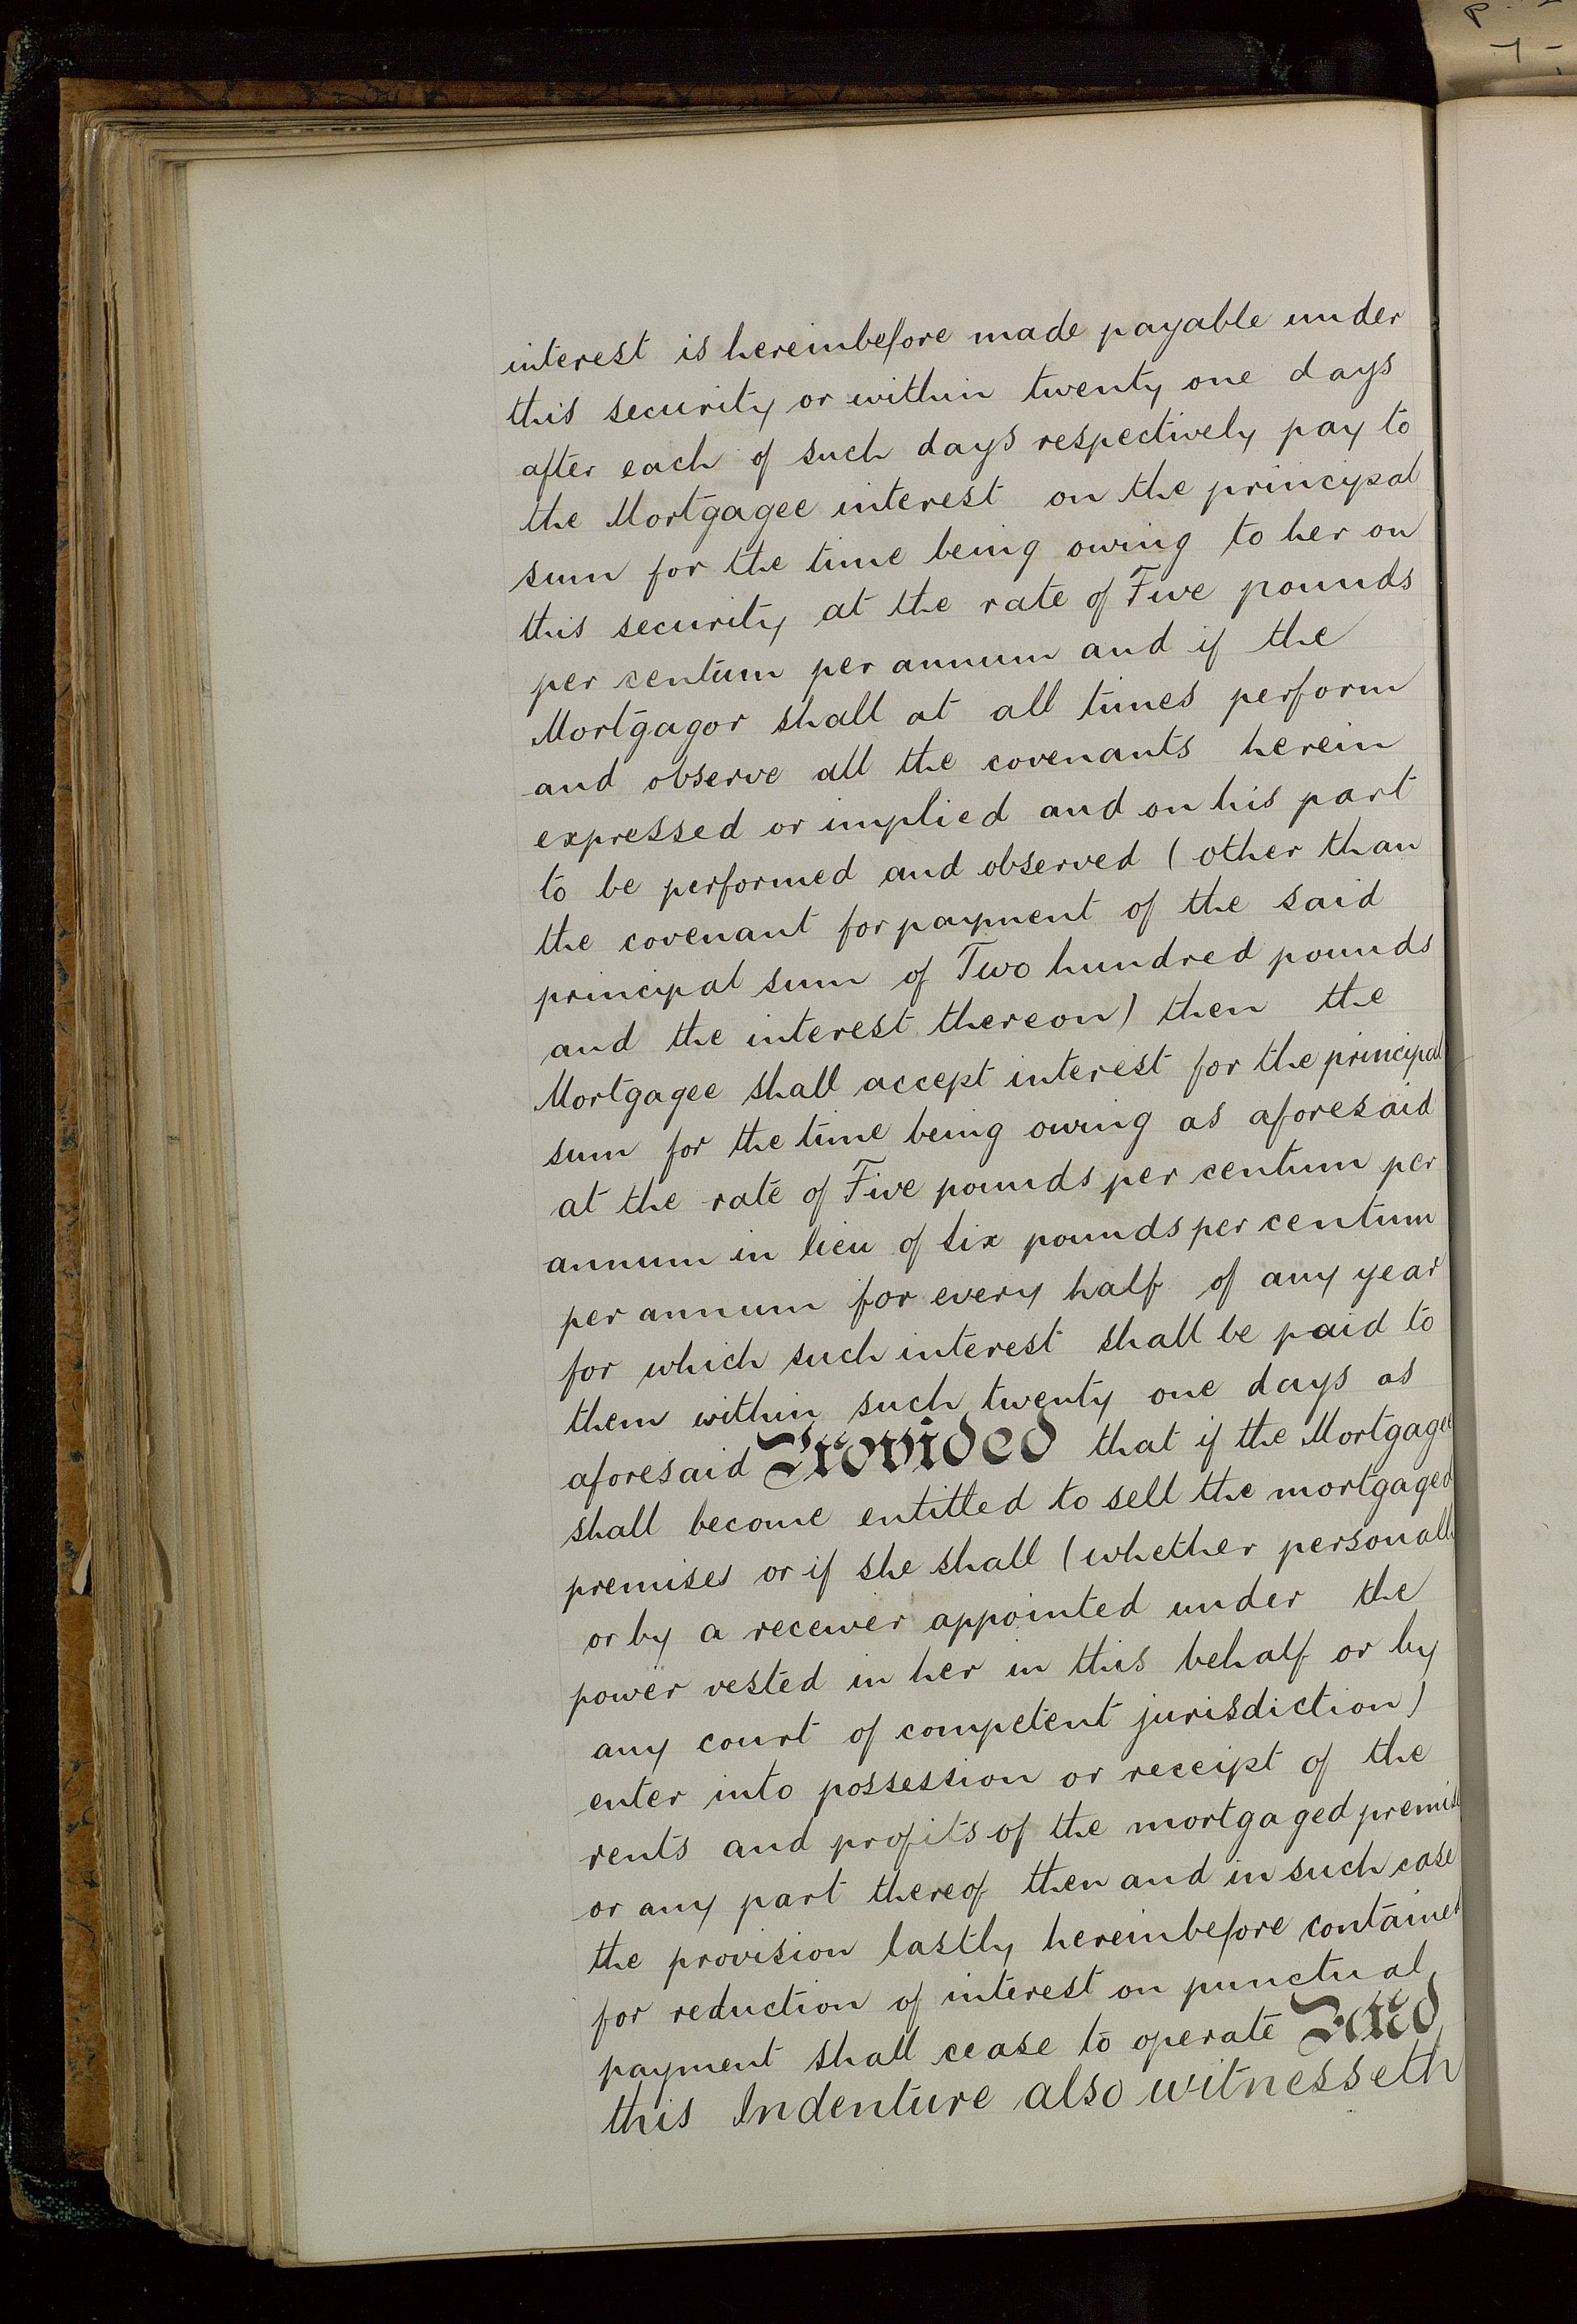 interest is hereinbefore made payable under
this security or within twenty one days
after each of such days respectively pay to
the Mortgagee interest on the principal
sum for the time being owing to her on
this security at the rate of Five pounds
per centum per annum and if the
Mortgagor shall at all times perform
and observe all the covenants herein
expressed or implied and on his part
to be performed and observed (other than
the covenant for payment of the said
principal sum of Two hundred pounds
and the interest thereon) then the
Mortgagee shall accept interest for the principal
sum for the time being owing as aforesaid
at the rate of Five pounds per centum per
annum in lieu of six pounds per centum
per annum for every half of any year
for which such interest shall be paid to
them within such twenty one days as
aforesaid Provided that if the Mortgagee
shall become entitled to sell the mortgaged
premises or if she shall (whether personall
or by a receiver appointed under the
power vested in her in this behalf or by
any court of competent jurisdiction)
enter into possession or receipt of the
rents and profits of the mortgaged premis
or any part thereof then and in such case
the provision lastly hereinbefore contained
for reduction of interest on punctual
payment shall cease to operate And
this Indenture also witnesseth